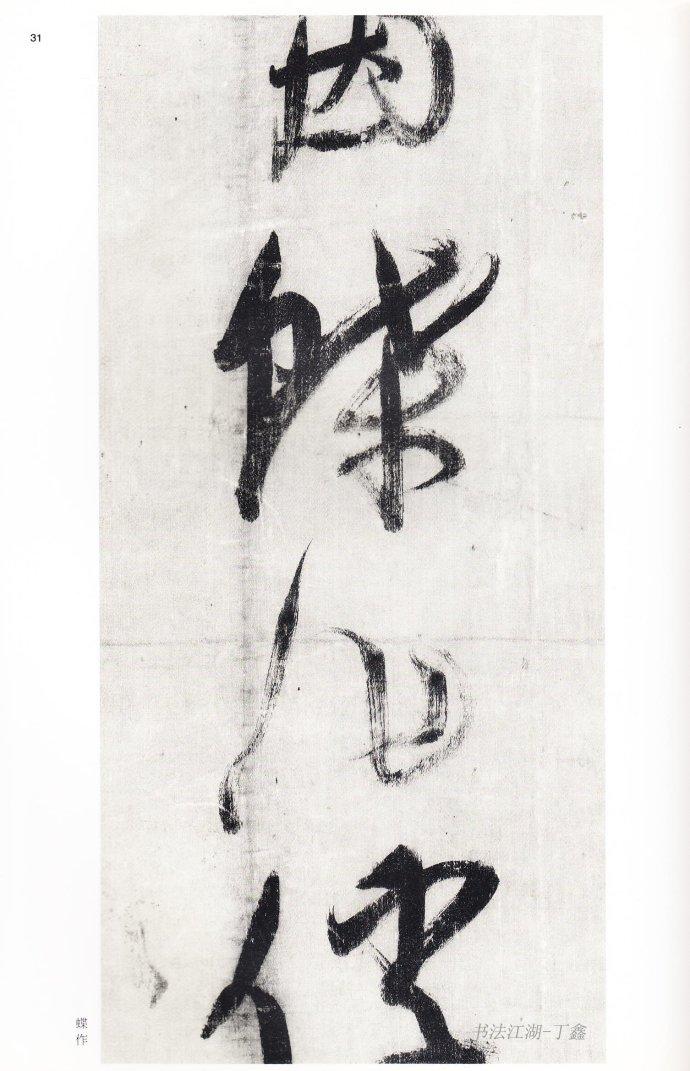 31
蝶作
蝶作
书法江湖-丁鑫